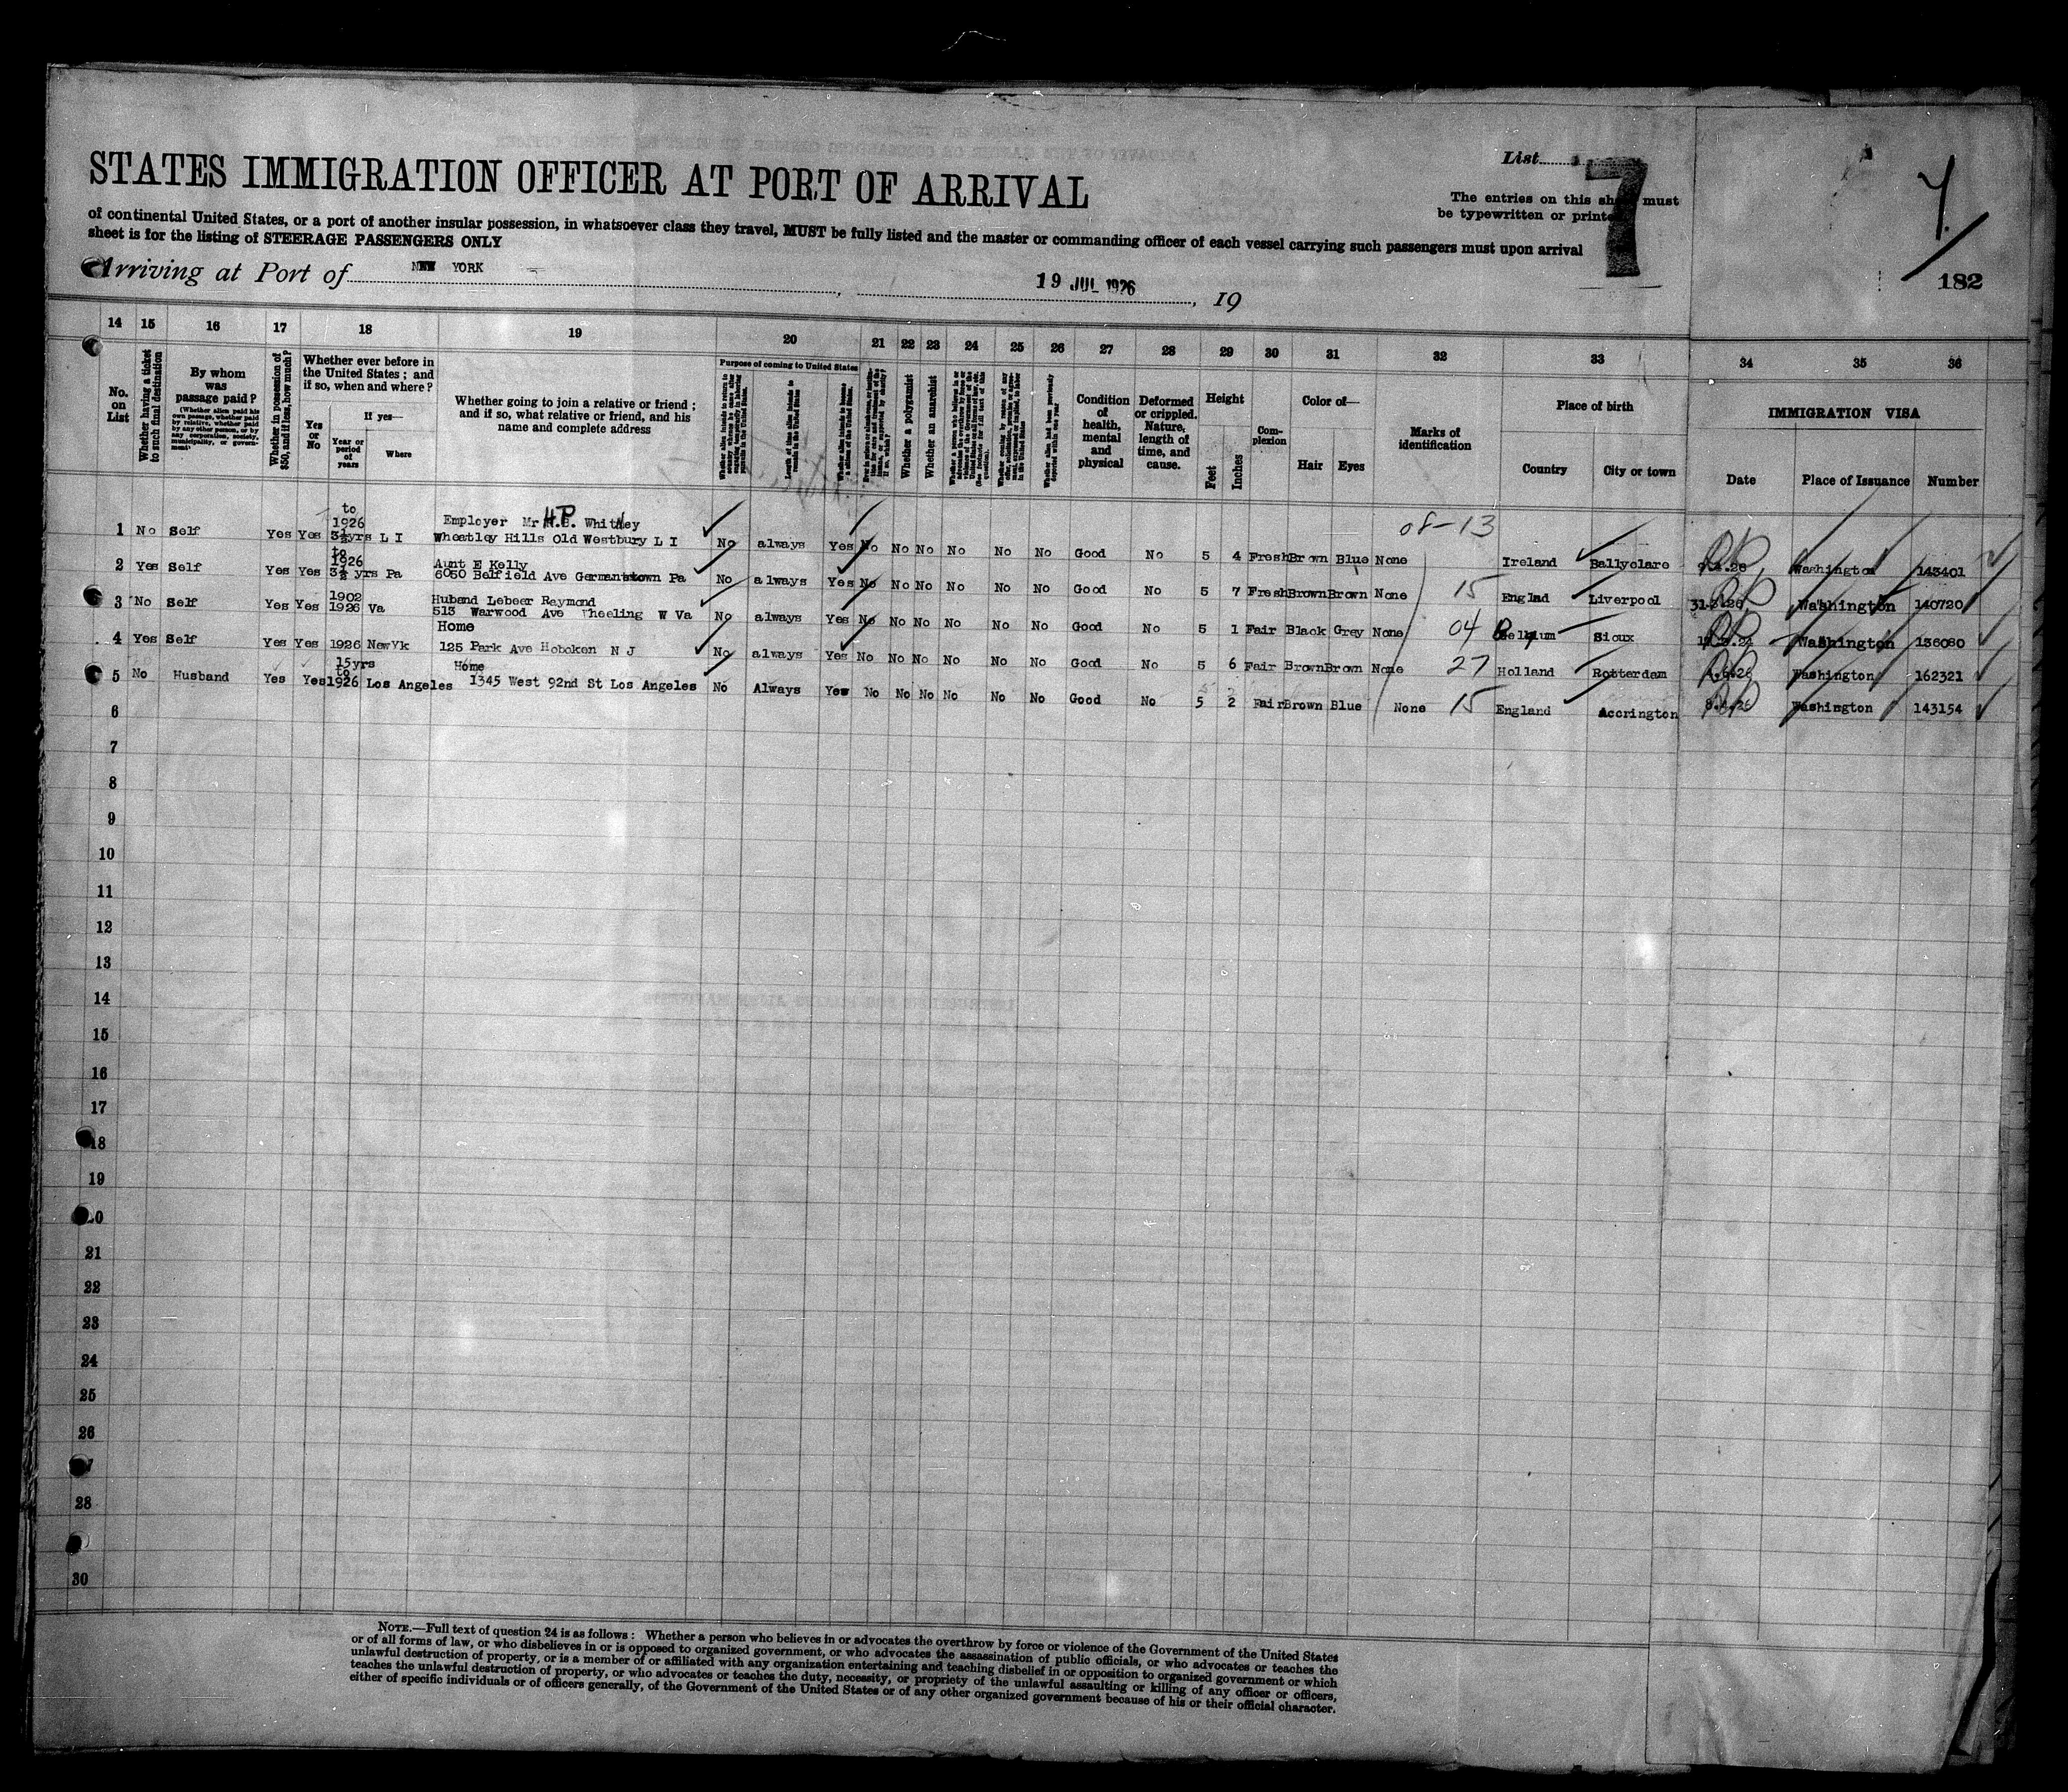 List 7
4
182
STATES IMMIGRATION OFFICER AT PORT OF ARRIVAL
The entries on this sheet must
be typewritten or printed
of continental United States, or a port of another insular possession, in whatsoever class they travel, MUST be fully listed and the master or commanding officer of each vessel carrying such passengers must upon arrival
sheet is for the listing of STEERAGE PASSENGERS ONLY
Arriving at Port of NEW YORK, 19 JUL 1926, 19
14 15 16 17 18 19 20 21 22 23 24 25 26 27 28 29 30 31 32 33 34 35 36
No. on List
Whether having a ticket to such final destination
By whom was passage paid?
(Whether alien paid his own passage, whether paid by relative, whether paid by any other person, or by any corporation, society, municipality, or government)
Whether in possession of $50, and if less, how much?
Whether ever before in the United States; and if so, when and where?
Yes or No
If yes—
Year or period of years
Where
Whether going to join a relative or friend; and if so, what relative or friend, and his name and complete address
Purpose of coming to United States
Length of time alien intends to remain in the United States
Whether alien intends to become a citizen of the United States
Whether a polygamist
Whether an anarchist
Condition of health, mental and physical
Deformed or crippled. Nature, length of time, and cause.
Height
Feet
Inches
Complexion
Color of—
Hair
Eyes
Marks of identification
Place of birth
Country
City or town
IMMIGRATION VISA
Date
Place of Issuance
Number
08-13
to
1926 Employer Mr H.P. Whitney
1 No Self Yes Yes 3½yrs L I Wheatley Hills Old Westbury L I No always Yes No No No No No No Good No 5 4 Fresh Brown Blue None Ireland Ballyclare Washington 143401
to
1926 Aunt E Kelly
2 Yes Self Yes Yes 3½ yrs Pa 6050 Belfield Ave Germantown Pa No always Yes No No No No No No Good No 5 7 Fresh Brown Brown None 15 England Liverpool Washington 140720
1902 Huband Lebeer Raymond
3 No Self Yes Yes 1926 Va 513 Warwood Ave Wheeling W Va No always Yes No No No No No No Good No 5 1 Fair Black Grey None 04 Belgium Sioux Washington 136080
Home
4 Yes Self Yes Yes 1926 NewYk 125 Park Ave Hoboken N J No always Yes No No No No No No Good No 5 6 Fair Brown Brown None 27 Holland Rotterdam Washington 162321
15yrs
to Home
5 No Husband Yes Yes 1926 Los Angeles 1345 West 92nd St Los Angeles No Always Yes No No No No No No Good No 5 2 Fair Brown Blue None 15 England Accrington Washington 143154
6
7
8
9
10
11
12
13
14
15
16
17
18
19
20
21
22
23
24
25
26
27
28
30
NOTE.—Full text of question 24 is as follows: Whether a person who believes in or advocates the overthrow by force or violence of the Government of the United States
or of all forms of law, or who disbelieves in or is opposed to organized government, or who advocates the assassination of public officials, or who advocates or teaches the
unlawful destruction of property, or is a member of or affiliated with any organization entertaining and teaching disbelief in or opposition to organized government or which
teaches the unlawful destruction of property, or who advocates or teaches the duty, necessity, or propriety of the unlawful assaulting or killing of any officer or officers,
either of specific individuals or of officers generally, of the Government of the United States or of any other organized government because of his or their official character.